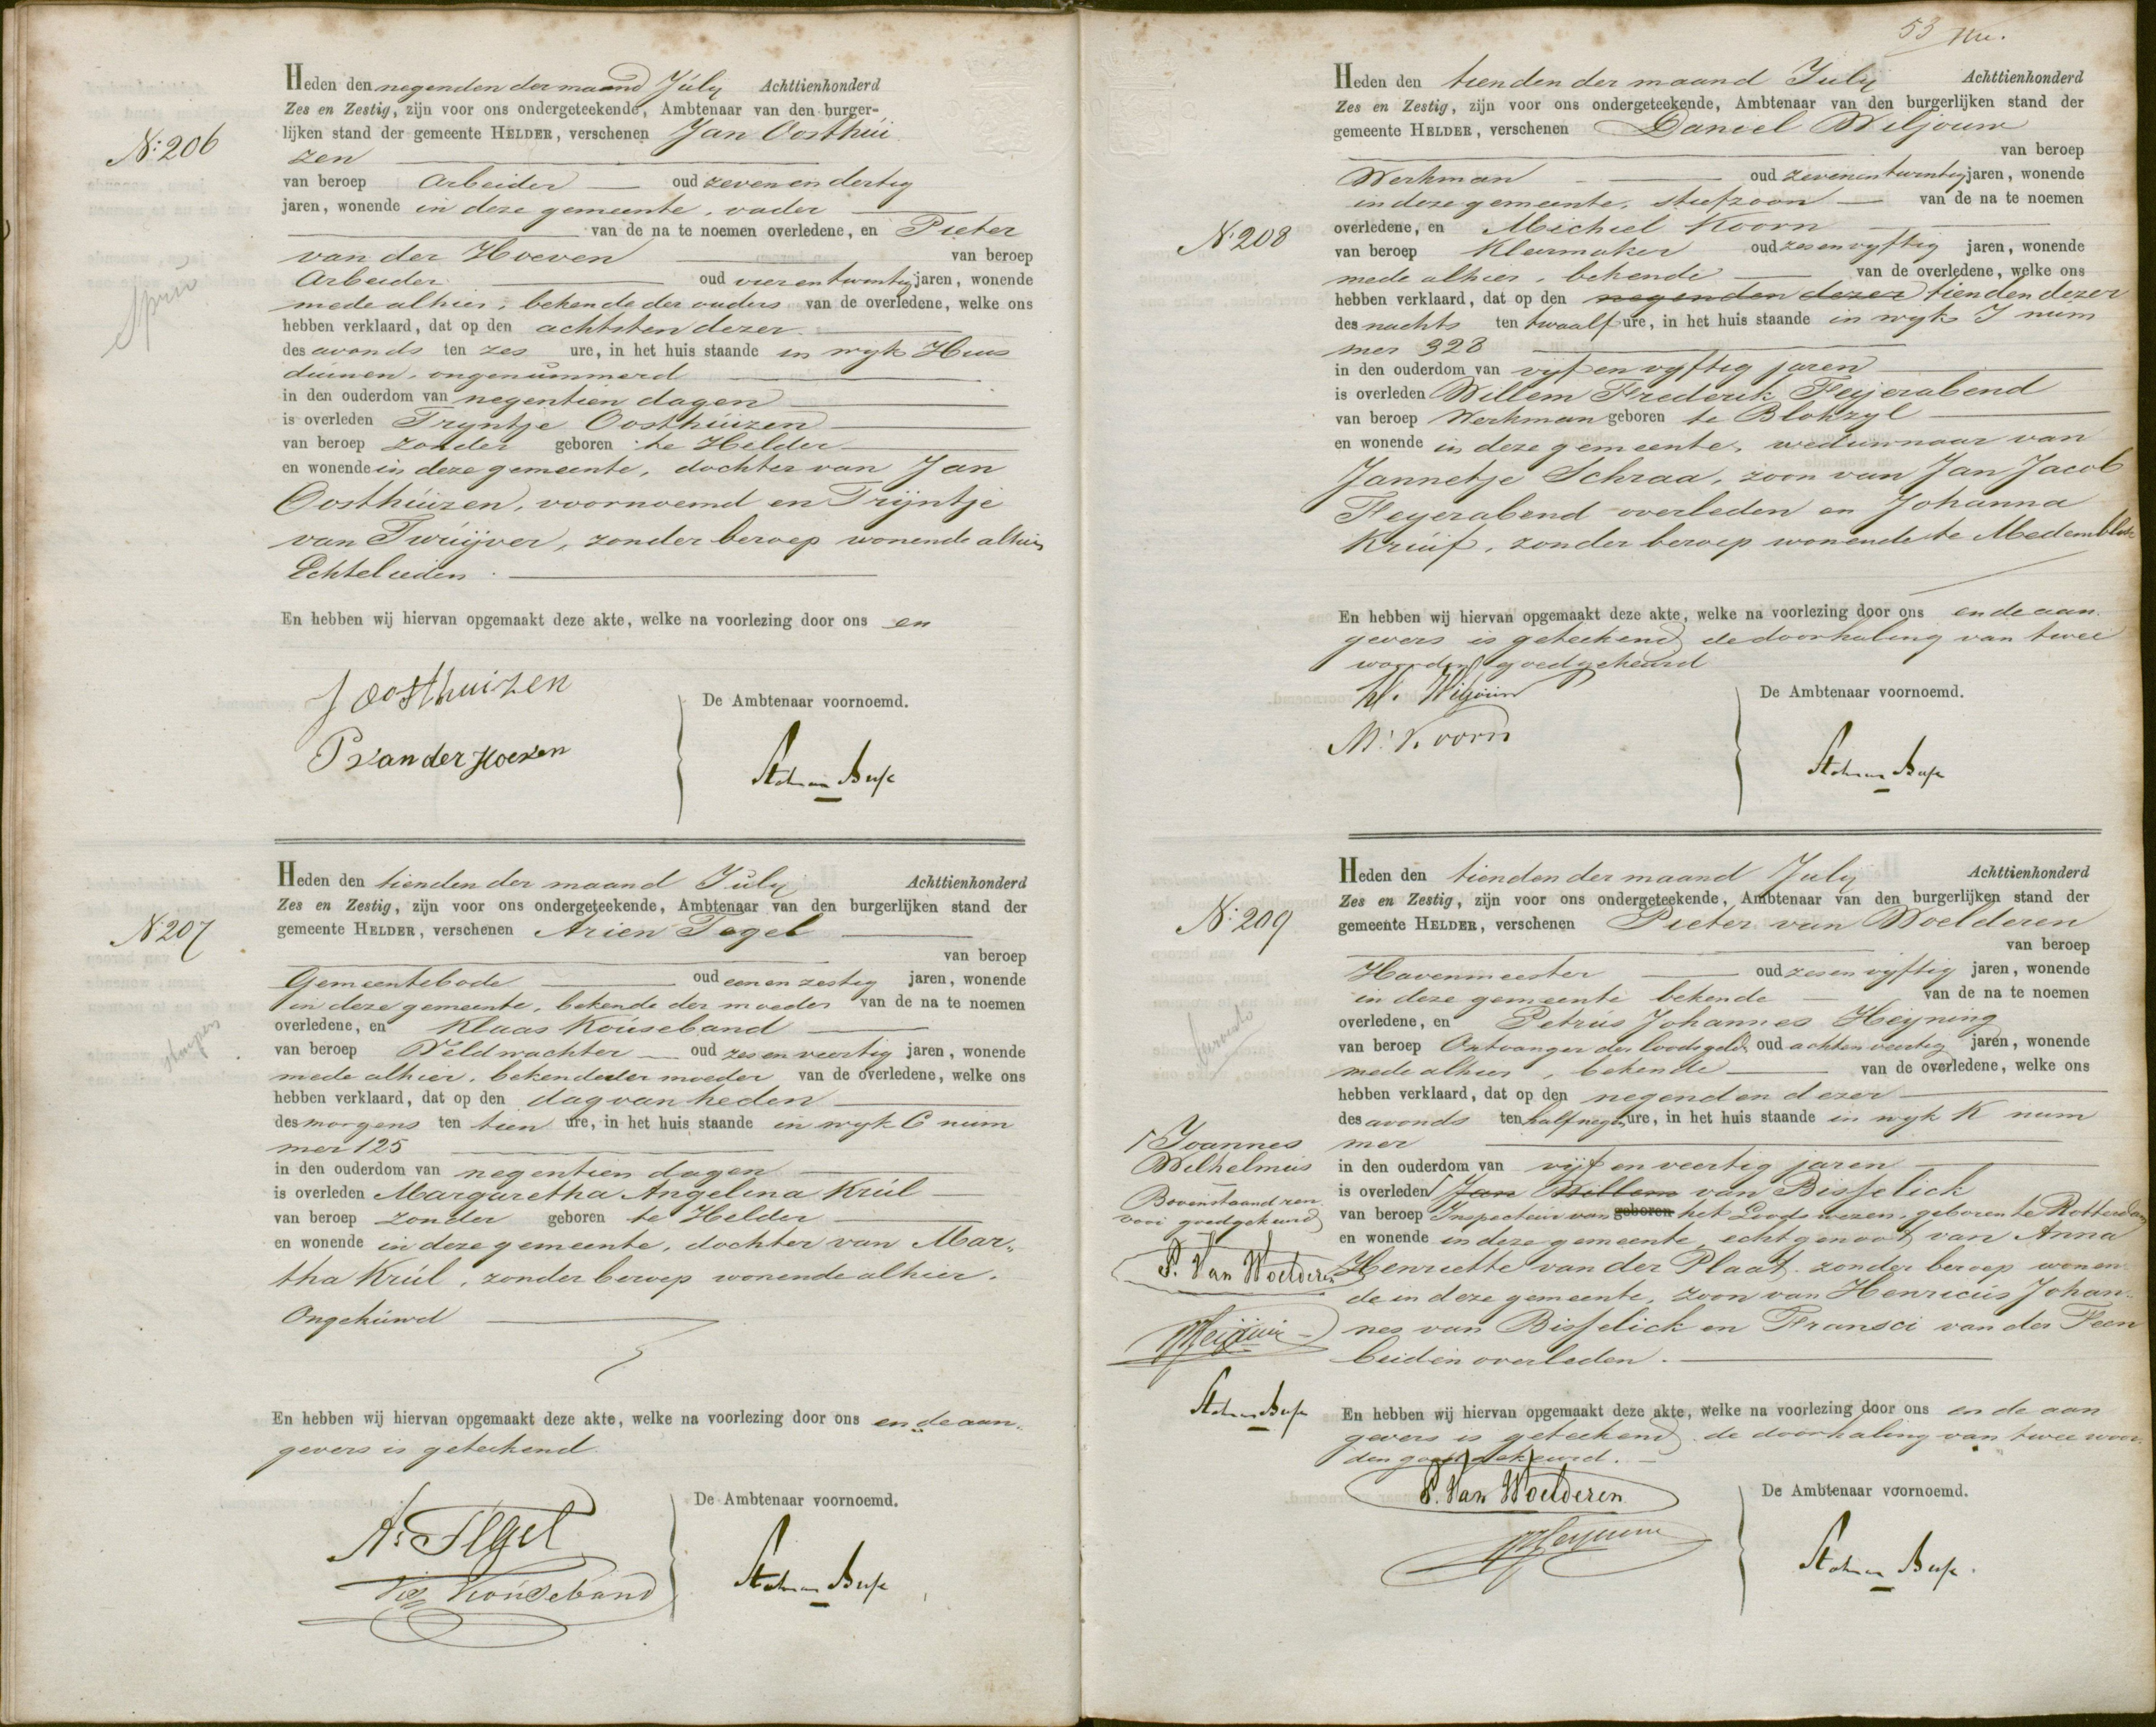 Heden den negenden der maand July Achttienhonderd
Zes en Zestig, zijn voor ons ondergeteekende, Ambtenaar van den burger-
lijken stand der gemeente HELDER, verschenen Jan Oosthui
N: 206
zen
van beroep Arbeider oud zeven en dertig
jaren, wonende in deze gemeente, vader
van de na te noemen overledene, en Pieter
van der Hoeven van beroep
Arbeider oud vierentwintig jaren, wonende
mede alhier, bekende der ouders van de overledene, welke ons
hebben verklaard, dat op den achtsten dezer
des avonds ten zes ure, in het huis staande in wyk Huis
duinen, ongenummerd
in den ouderdom van negentien dagen
is overleden Tryntje Oosthuizen
van beroep zonder geboren te Helder
en wonende in deze gemeente, dochter van Jan
Oosthuizen, voornoemd en Trijntje
van Twuijver, zonder beroep wonende alhier
Echtelieden.
En hebben wij hiervan opgemaakt deze akte, welke na voorlezing door ons en
J Oosthuizen
De Ambtenaar voornoemd.
P van der Hoeven
Heden den tienden der maand July Achttienhonderd
Zes en Zestig, zijn voor ons ondergeteekende, Ambtenaar van den burgerlijken stand der
N: 207
gemeente HELDER, verschenen Arien Tegel
van beroep
Gemeentebode oud een en zestig jaren, wonende
in deze gemeente, bekende der moeder van de na te noemen
overledene, en Klaas Kouseband
van beroep Veldwachter oud zes en veertig jaren, wonende
mede alhier, bekende der moeder van de overledene, welke ons
hebben verklaard, dat op den dag van heden
des morgens ten tien ure, in het huis staande in wyk C num
mer 125
in den ouderdom van negentien dagen
is overleden Margaretha Angelina Krul
van beroep zonder geboren te Helder
en wonende in deze gemeente, dochter van Mar„
tha Krul, zonder beroep wonende alhier.
Ongehuwd
En hebben wij hiervan opgemaakt deze akte, welke na voorlezing door ons en de aan„
gevers is geteekend
De Ambtenaar voornoemd.
A: Tegel
Kouseband
53
Heden den tienden der maand July Achttienhonderd
Zes en Zestig, zijn voor ons ondergeteekende, Ambtenaar van den burgerlijken stand der
gemeente HELDER, verschenen Daniel Wiljouw
van beroep
Werkman oud zevenentwintig jaren, wonende
in deze gemeente, stiefzoon van de na te noemen
N: 208
overledene, en Michiel Koorn
van beroep Kleermaker oud zes en vyftig jaren, wonende
mede alhier, bekende van de overledene, welke ons
hebben verklaard, dat op den negenden dezer tienden dezer
des nachts ten twaalf ure, in het huis staande in wyk I num
mer 328
in den ouderdom van vijf en vyftig jaren
is overleden Willem Frederik Feyerabend
van beroep Werkman geboren te Blokzyl
en wonende in deze gemeente, weduwnaar van
Jannetje Schraa, zoon van Jan Jacob
Feyerabend overleden en Johanna
Kruif, zonder beroep wonende te Medemblik
En hebben wij hiervan opgemaakt deze akte, welke na voorlezing door ons en de aan
gevers is geteekend de doorhaling van twee
woorden goedgekeurd
De Ambtenaar voornoemd.
Wiljouw
M: Koorn
Heden den tienden der maand July Achttienhonderd
Zes en Zestig, zijn voor ons ondergeteekende, Ambtenaar van den burgerlijken stand der
N: 209
gemeente HELDER, verschenen Pieter van Woelderen
van beroep
Havenmeester oud zes en vyftig jaren, wonende
in deze gemeente bekende van de na te noemen
overledene, en Petrus Johannes Heyning
van beroep Ontvanger der loodsgeld. oud acht en veertig jaren, wonende
mede alhier, bekende van de overledene, welke ons
hebben verklaard, dat op den negenden dezer
des avonds ten half negen ure, in het huis staande in wyk K num
mer
Joannes
Wilhelmus
in den ouderdom van vijf en veertig jaren
is overleden Jan Willem van Bisselick
Bovenstaand ren
vooi goedgekeurd
van beroep Inspecteur van geboren het Loodswezen, geboren te Rotterdam
en wonende in deze gemeente, echtgenoot van Anna
P. Van Woelderen
Henriette van der Plaat, zonder beroep wonen
de in deze gemeente, zoon van Henricus Johan„
nes van Bisselick en Fransci van der Feen
beiden overleden.
En hebben wij hiervan opgemaakt deze akte, welke na voorlezing door ons en de aan
gevers is geteekend de doorhaling van twee woor
den goedgekeurd.
De Ambtenaar voornoemd.
P. Van Woelderen